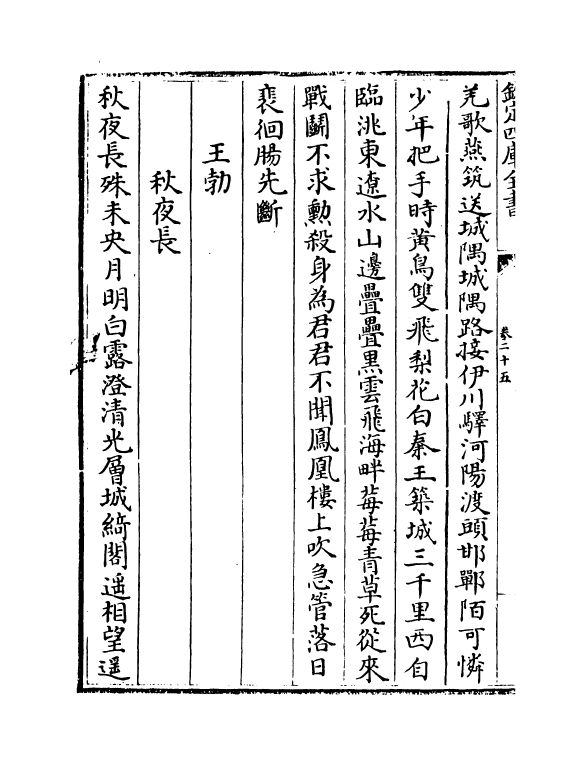 欽定四庫全書
卷二十五
羌歌燕筑送城隅城隅路接伊川驛河陽渡頭邯鄲陌可憐
少年把手時黄鳥雙飛梨花白秦王築城三千里西自
臨洮東遼水山邊疊疊黒雲飛海畔莓莓青草死從來
戰鬭不求勲殺身為君君不聞鳳凰樓上吹急管落日
裴徊腸先斷
王勃
秋夜長
秋夜長殊未央月明白露澄清光層城綺閣遥相望遥